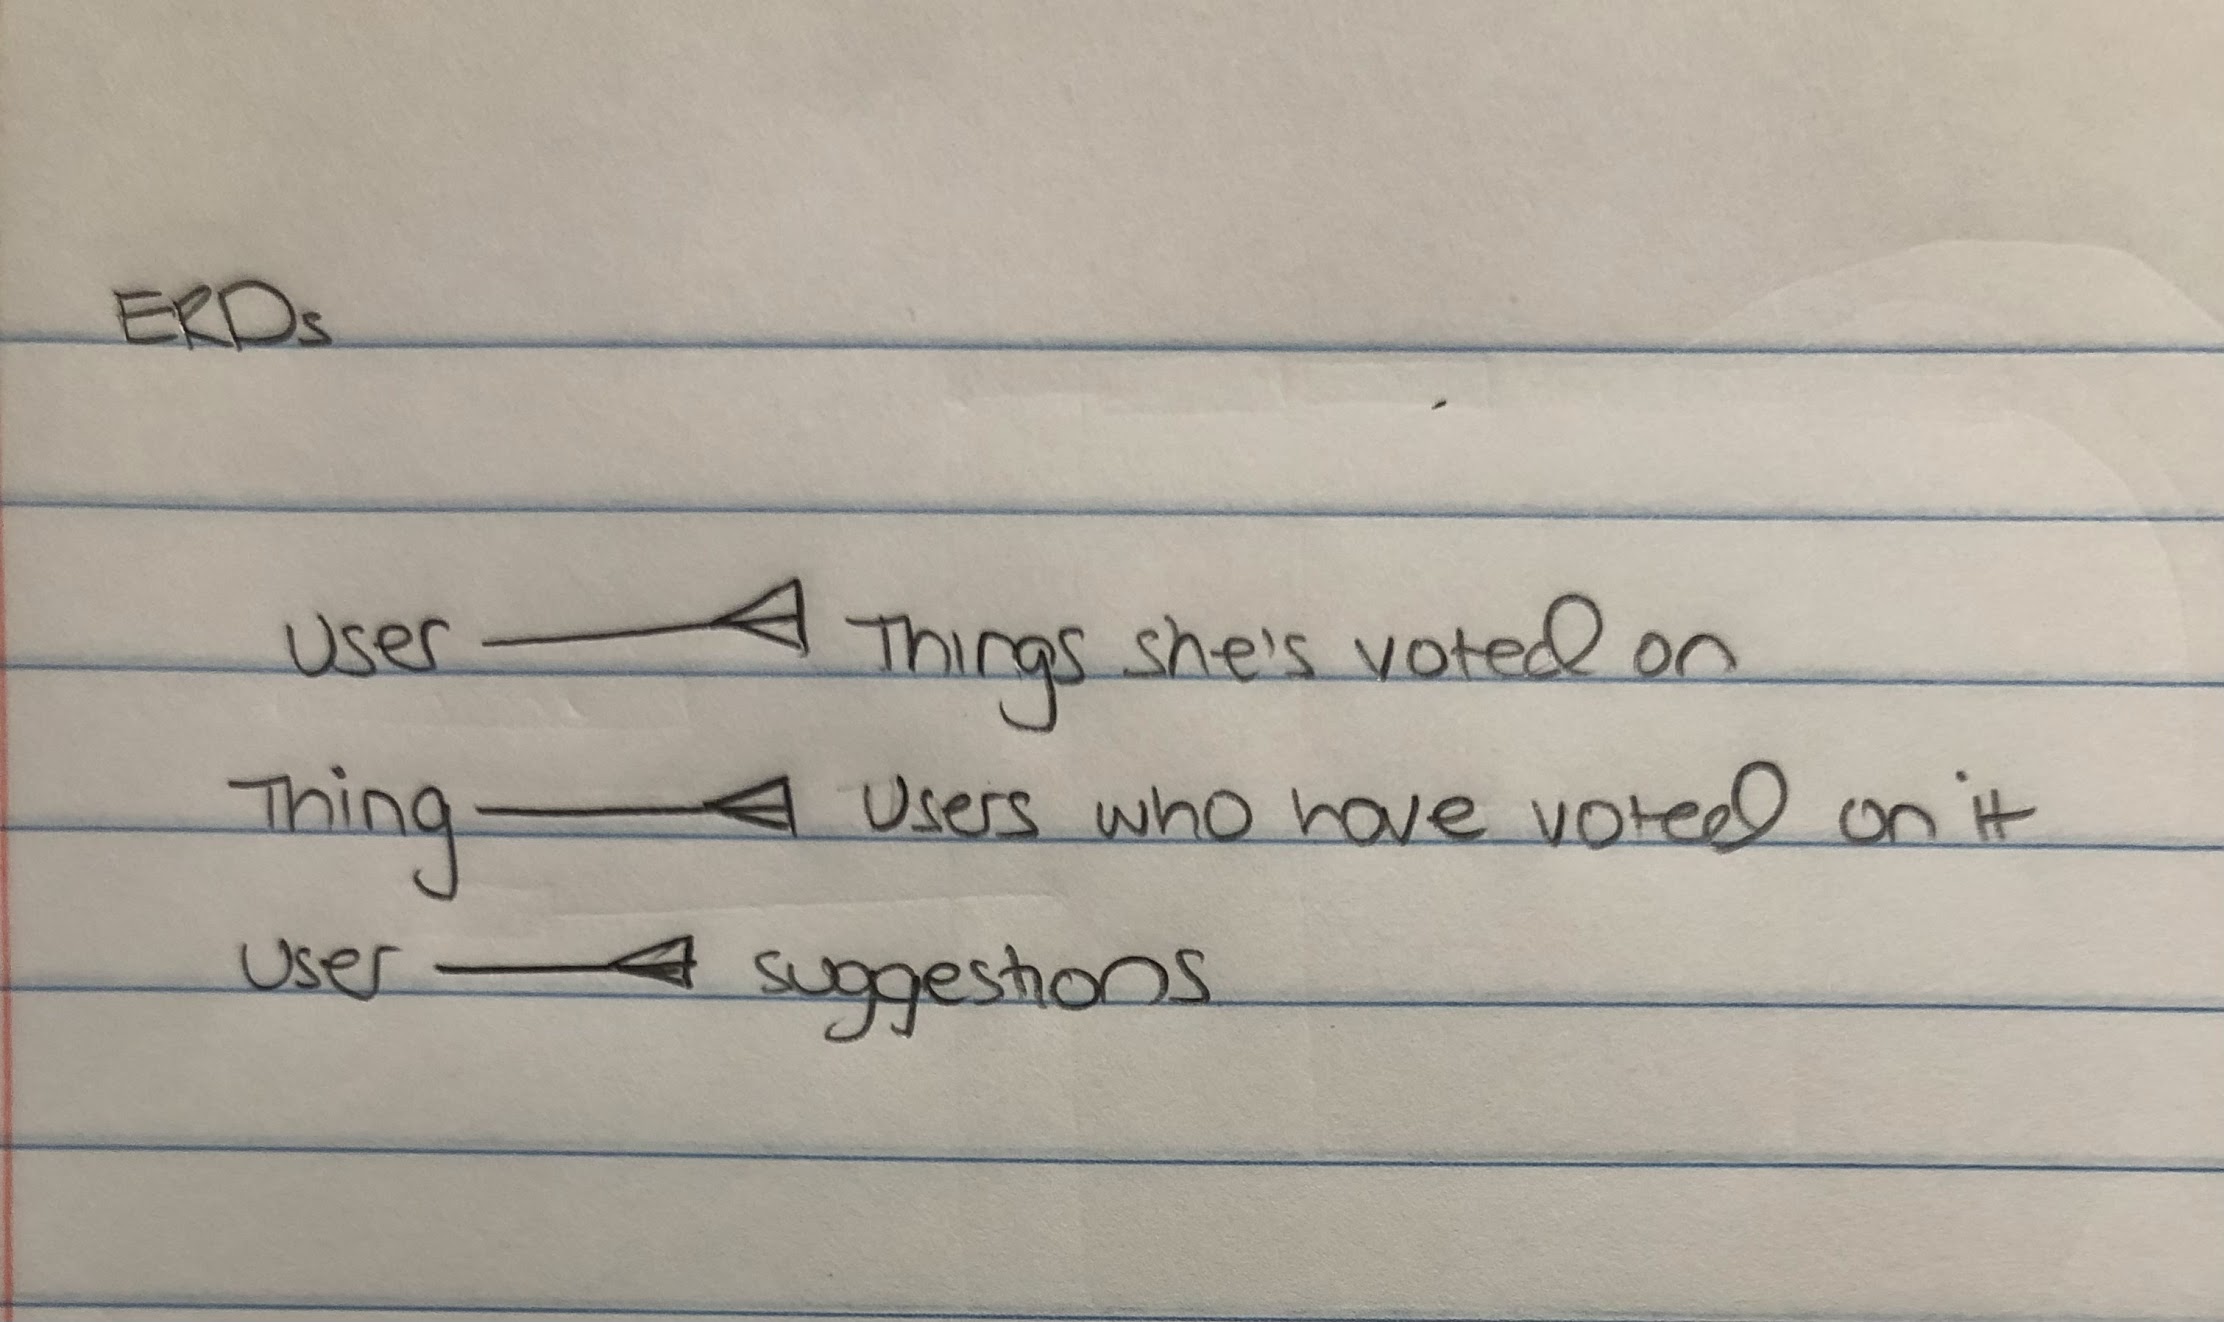 ERDs
User Things she's voted on
Thing Users who have voted on it
User suggestions